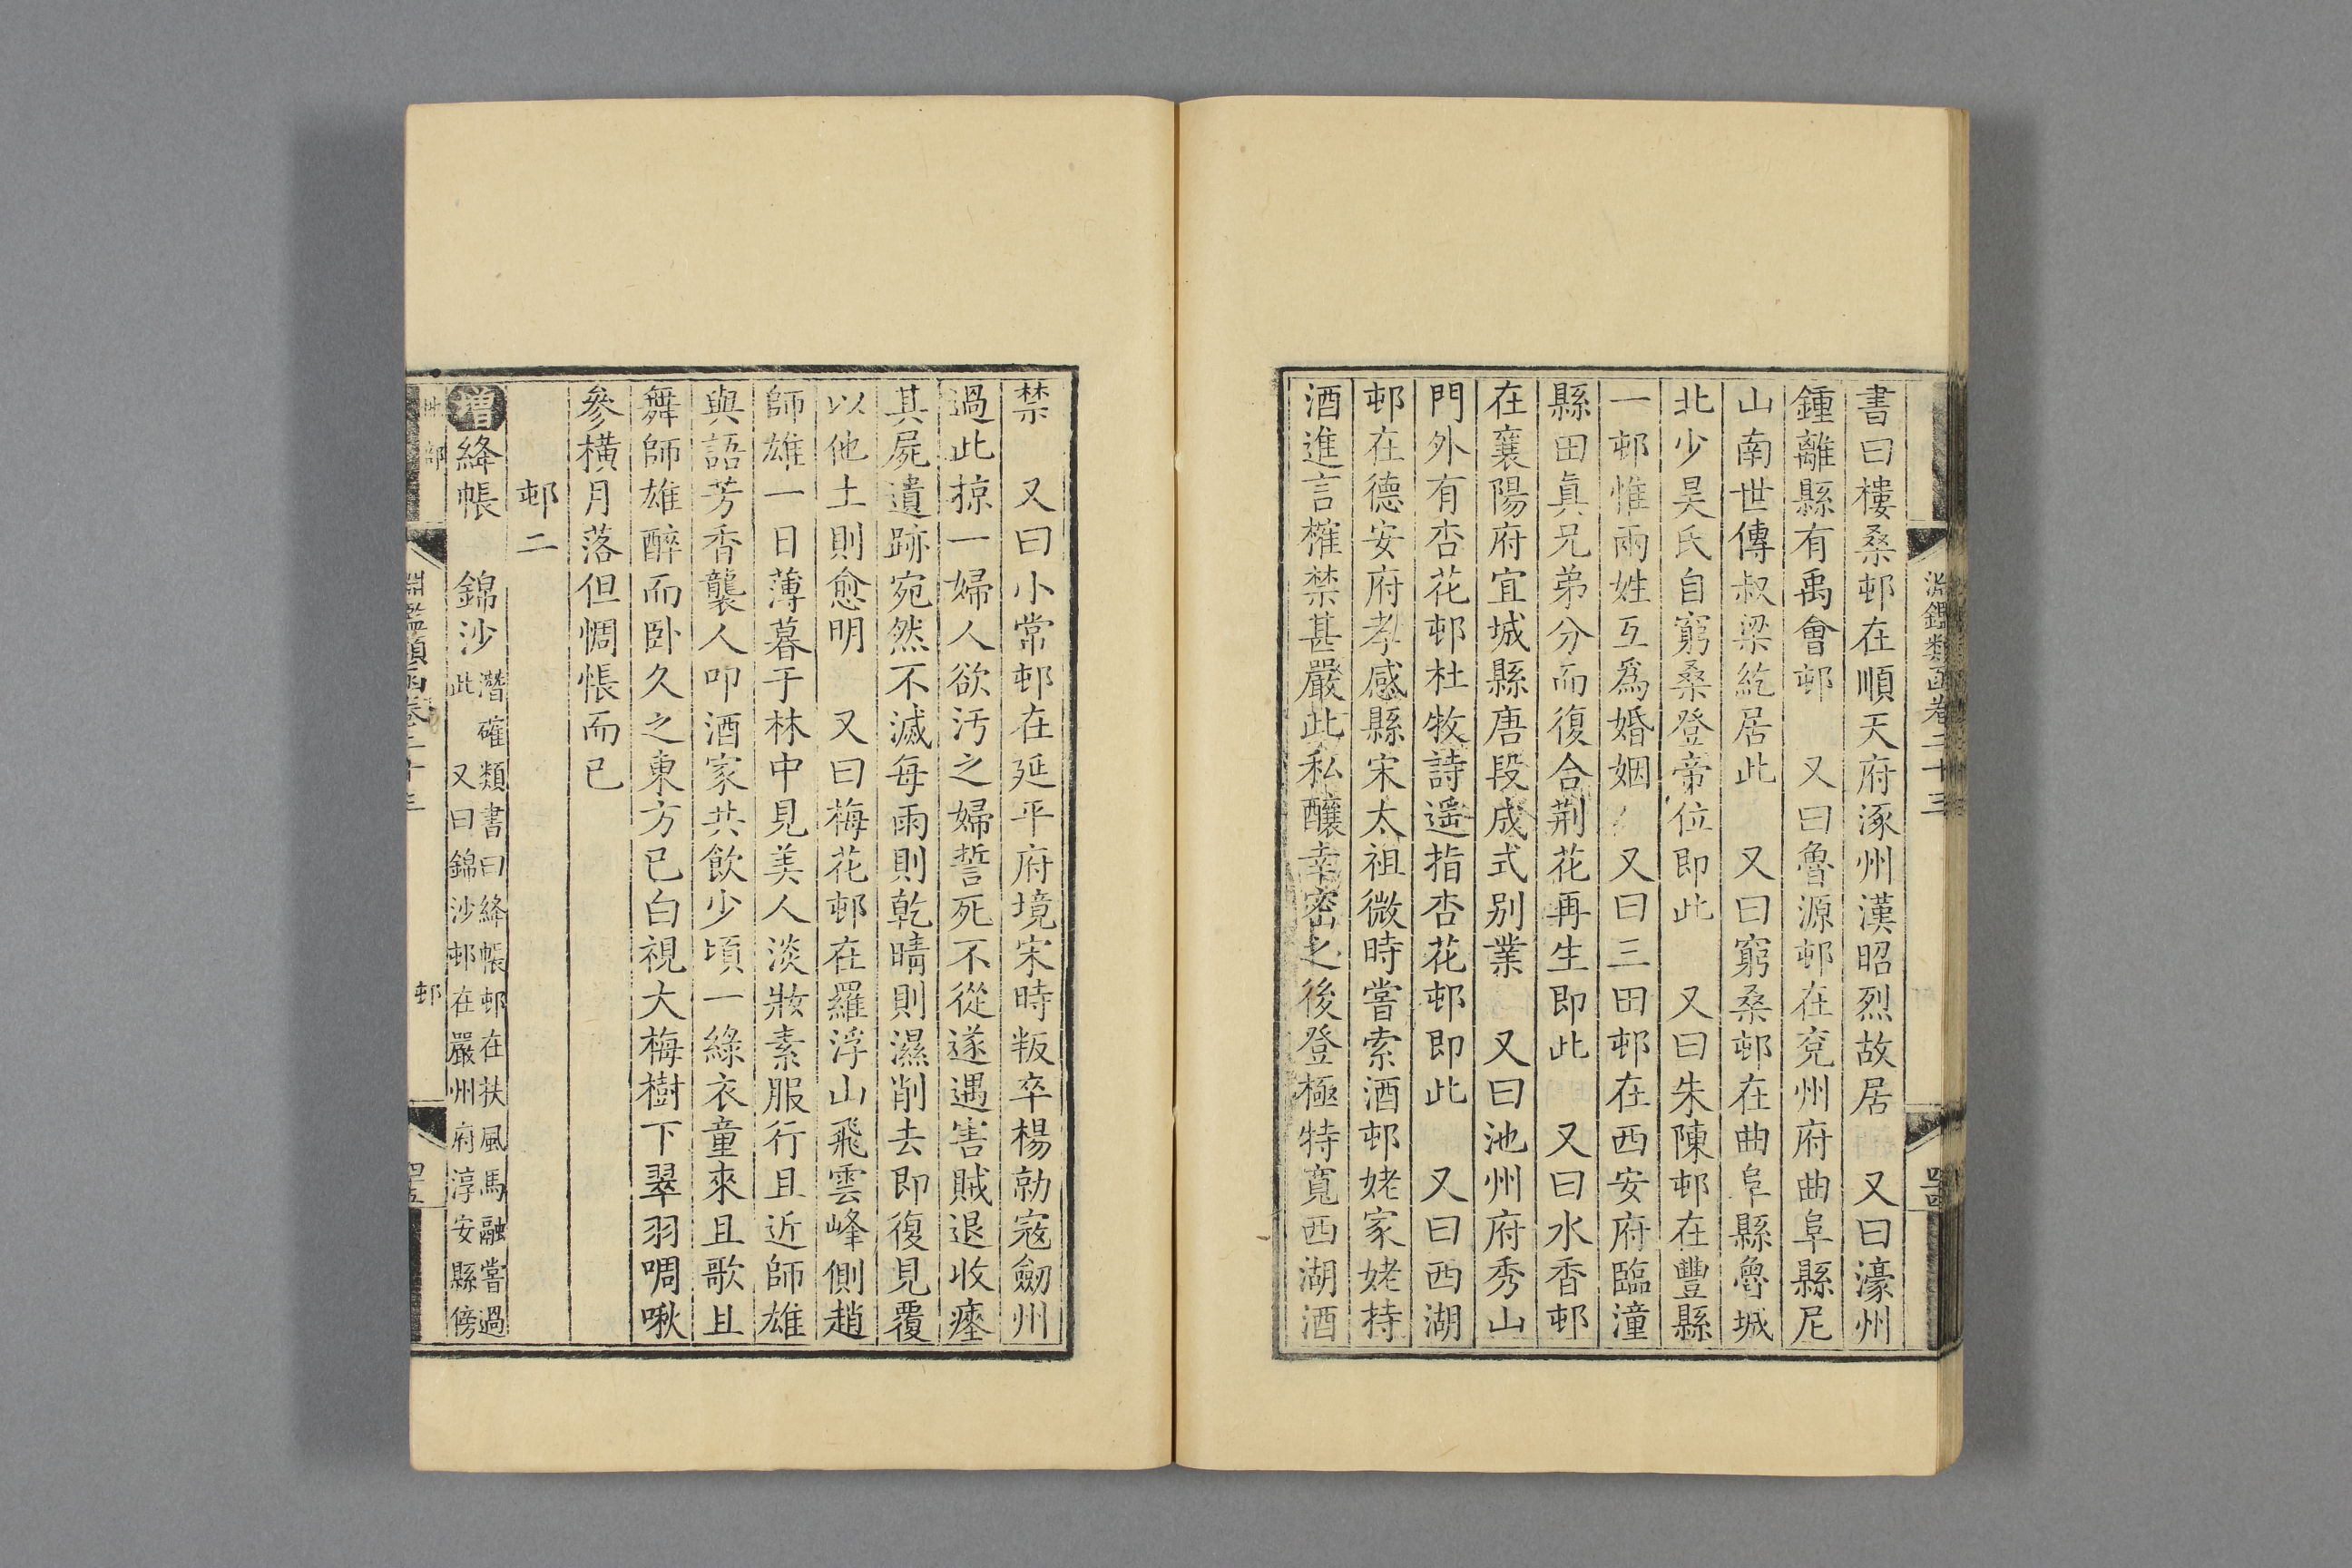 淵鑑類函卷二十三
書曰樓桑邨在順天府涿州漢昭烈故居　又曰濠州
鍾離縣有禹會邨　又曰魯源邨在兗州府曲阜縣尼
山南世傳叔梁紇居此　又曰窮桑邨在曲阜縣魯城
北少昊氏自窮桑登帝位即此　又曰朱陳邨在豐縣
一邨惟兩姓互爲婚姻　又曰三田邨在西安府臨潼
縣田眞兄弟分而復合荆花再生即此　又曰水香邨
在襄陽府宜城縣唐段成式别業　又曰池州府秀山
門外有杏花邨杜牧詩遥指杏花邨即此　又曰西湖
邨在德安府孝感縣宋太祖微時嘗索酒邨姥家姥持
酒進言榷禁甚嚴此私釀幸密之後登極特寬西湖酒
禁　又曰小常邨在延平府境宋時叛卒楊勍寇劒州
過此掠一婦人欲汚之婦誓死不從遂遇害賊退收瘞
其屍遺跡宛然不滅每雨則乾晴則濕削去即復見覆
以他土則愈明　又曰梅花邨在羅浮山飛雲峰側趙
師雄一日薄暮于林中見美人淡妝素服行且近師雄
與語芳香襲人叩酒家共飲少頃一綠衣童來且歌且
舞師雄醉而卧久之東方已白視大梅樹下翠羽啁啾
參横月落但惆悵而已
邨二
增絳帳　錦沙潛確類書曰絳帳邨在扶風馬融嘗過
此　又曰錦沙邨在嚴州府淳安縣傍
淵鑑類函卷二十三　邨